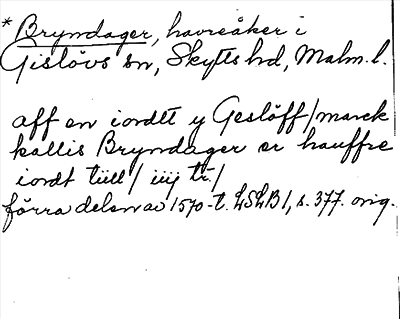 * Bryndager, havreåker i
Gislövs sn, Skytts hd, Malm. l.
aff en iordtt y Geslöff/marck
kallis Bryndager er hauffre
iordt tiill/ iiij tr./
förra delen av 1570-t. LSLB 1, s. 377. orig.